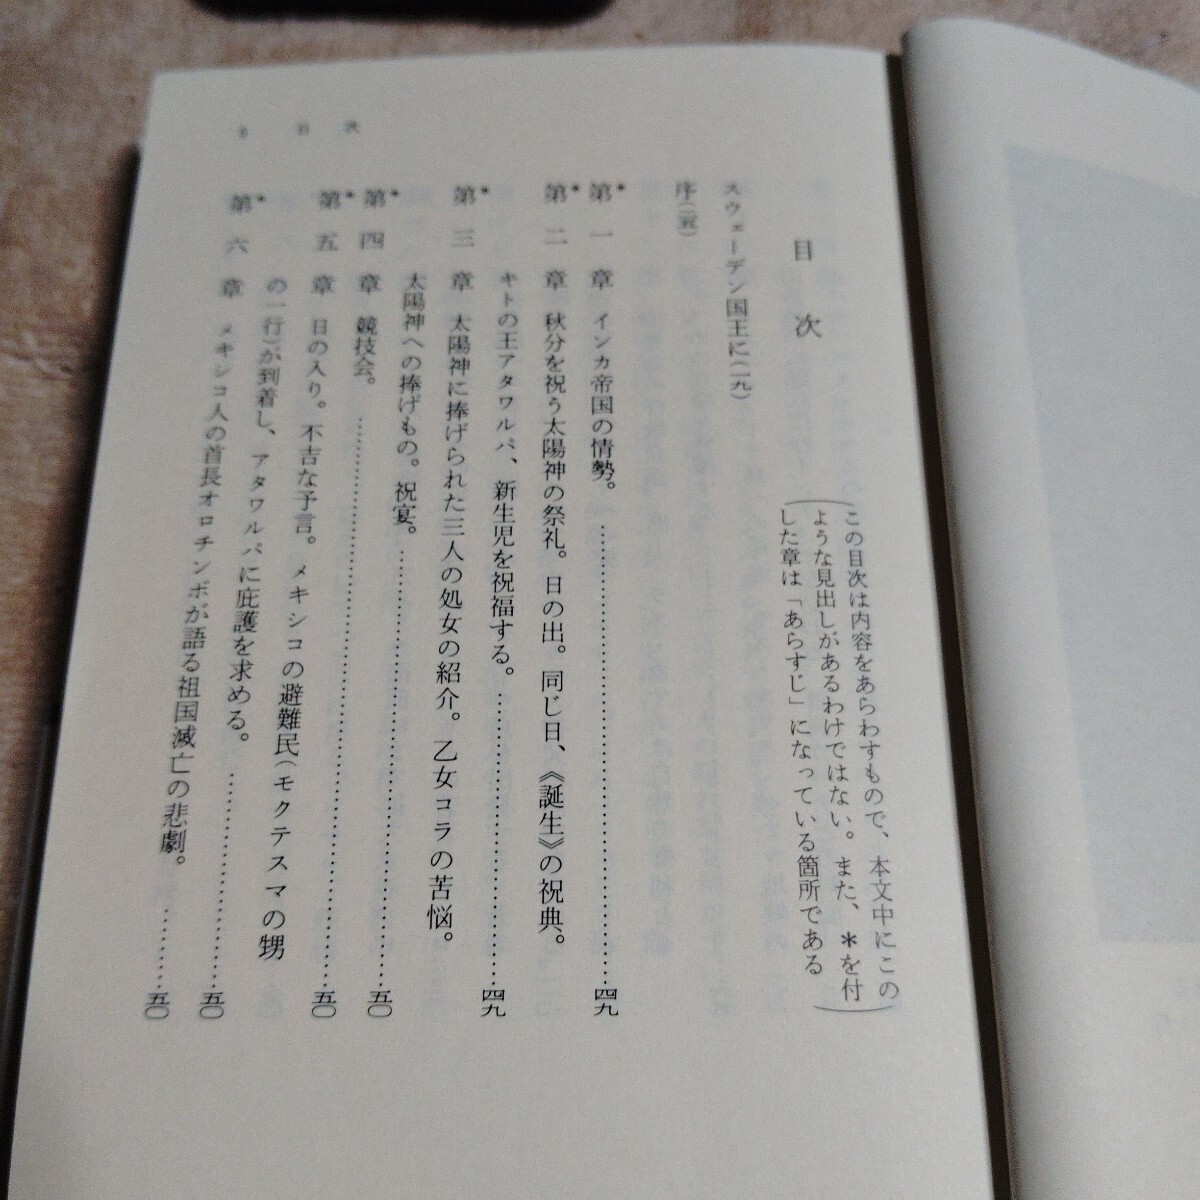 目次
この目次は内容をあらわすもので、本文中にこの
ような見出しがあるわけではない。また、＊を付
した章は「あらすじ」になっている箇所である
スウェーデン国王に(一九)
序(二五)
＊第一章 インカ帝国の情勢。……四九
＊第二章 秋分を祝う太陽神の祭礼。日の出。同じ日、《誕生》の祝典。
キトの王アタワルパ、新生児を祝福する。……四九
＊第三章 太陽神に捧げられた三人の処女の紹介。乙女コラの苦悩。
太陽神への捧げもの。祝宴。……五〇
＊第四章 競技会。……五〇
＊第五章 日の入り。不吉な予言。メキシコの避難民(モクテスマの甥
の一行)が到着し、アタワルパに庇護を求める。……五〇
＊第六章 メキシコ人の首長オロチンボが語る祖国滅亡の悲劇。……五〇
目次